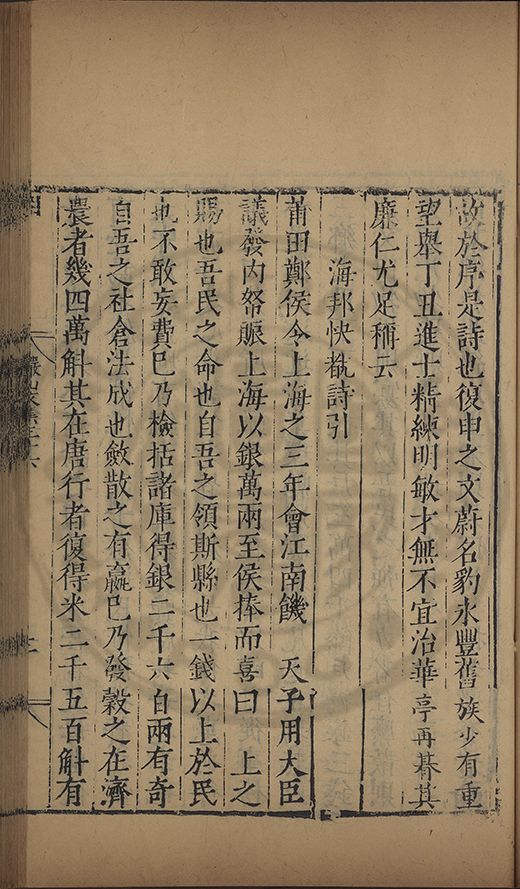 故於序是詩也復申之文蔚名豹永豐舊族少有重
望舉丁丑進士精練明敏才無不宜治華亭再朞其
廉仁尤足稱云
海邦快覩詩引
莆田鄭侯令上海之三年會江南饑 天子用大臣
議發内帑賑上海以銀萬兩至侯捧而喜曰 上之
賜也吾民之命也自吾之領斯縣也一錢以上於民
也不敢妄費巳乃檢括諸庫得銀二千六百兩有奇
自吾之社倉法成也斂散之有贏巳乃發糓之在濟
農者幾四萬斛其在唐行者復得米二千五百斛有